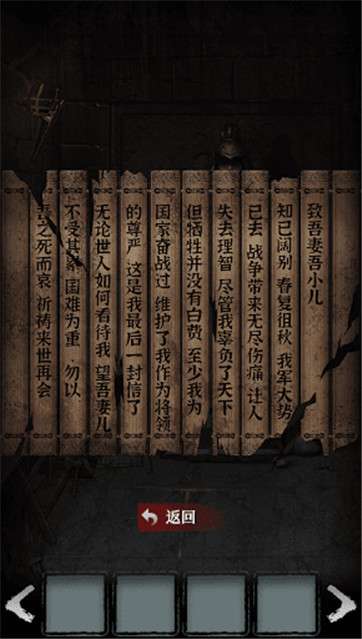 致吾妻吾小儿
知已阔别 春复徂秋 我军大势
已去 战争带来无尽伤痛 让人
失去理智 尽管我辜负了天下
但牺牲并没有白费 至少我为
国家奋战过 维护了我作为将领
的尊严 这是我最后一封信了
无论世人如何看待我 望吾妻儿
不受其累 国难为重 勿以
吾之死而哀 祈祷来世再会
返回